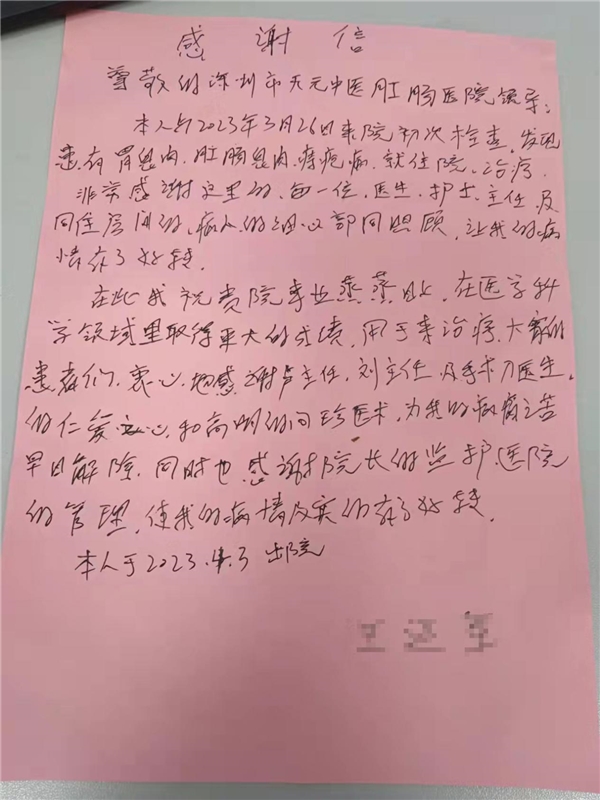 感谢信
尊敬的深圳市天元中医肛肠医院领导:
本人于2023年3月26日来院初次检查,发现
患有胃息肉、肛肠息肉、痔疮痛、就住院、治疗.
非常感谢这里的、每一位、医生、护士、主任、及
同住房间的、病人的细心部同照顾,让我的病
情有了好转.
在此我祝贵院事业蒸蒸日上,在医学科
学领域里取得更大的成绩,用于来治疗、大家的
患者们、衷心、地感谢卢主任、刘主任、及手术刀医生、
的仁爱之心、和高明的问珍医术,为我的病痛之苦
早日解除.同时也感谢院长的监护、医院
的管理,使我的病情及实的有了好转.
本人于2023.4.3出院